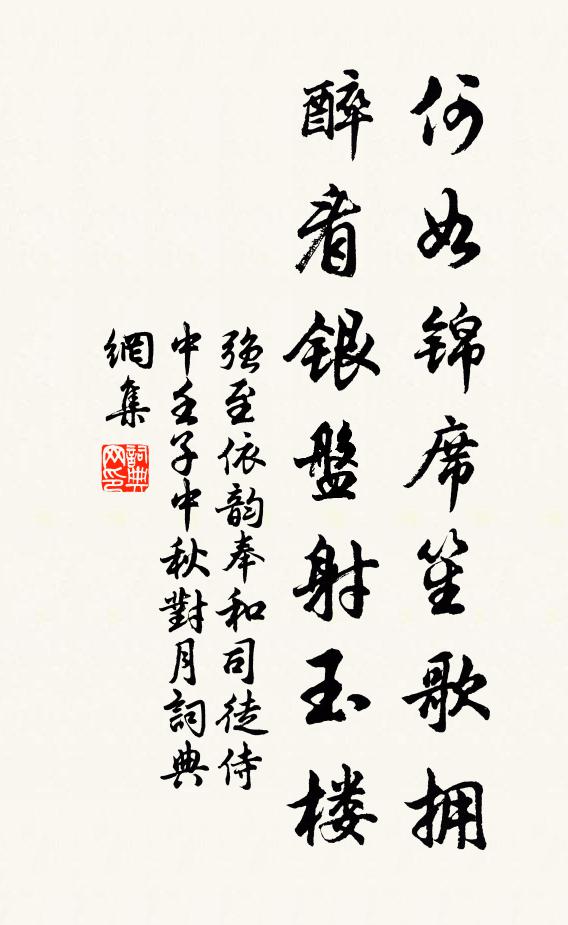 何如锦席笙歌拥
醉看银盘射玉楼
强至依韵奉和司徒侍
中壬子中秋對月詞典
網集
詞典
网印